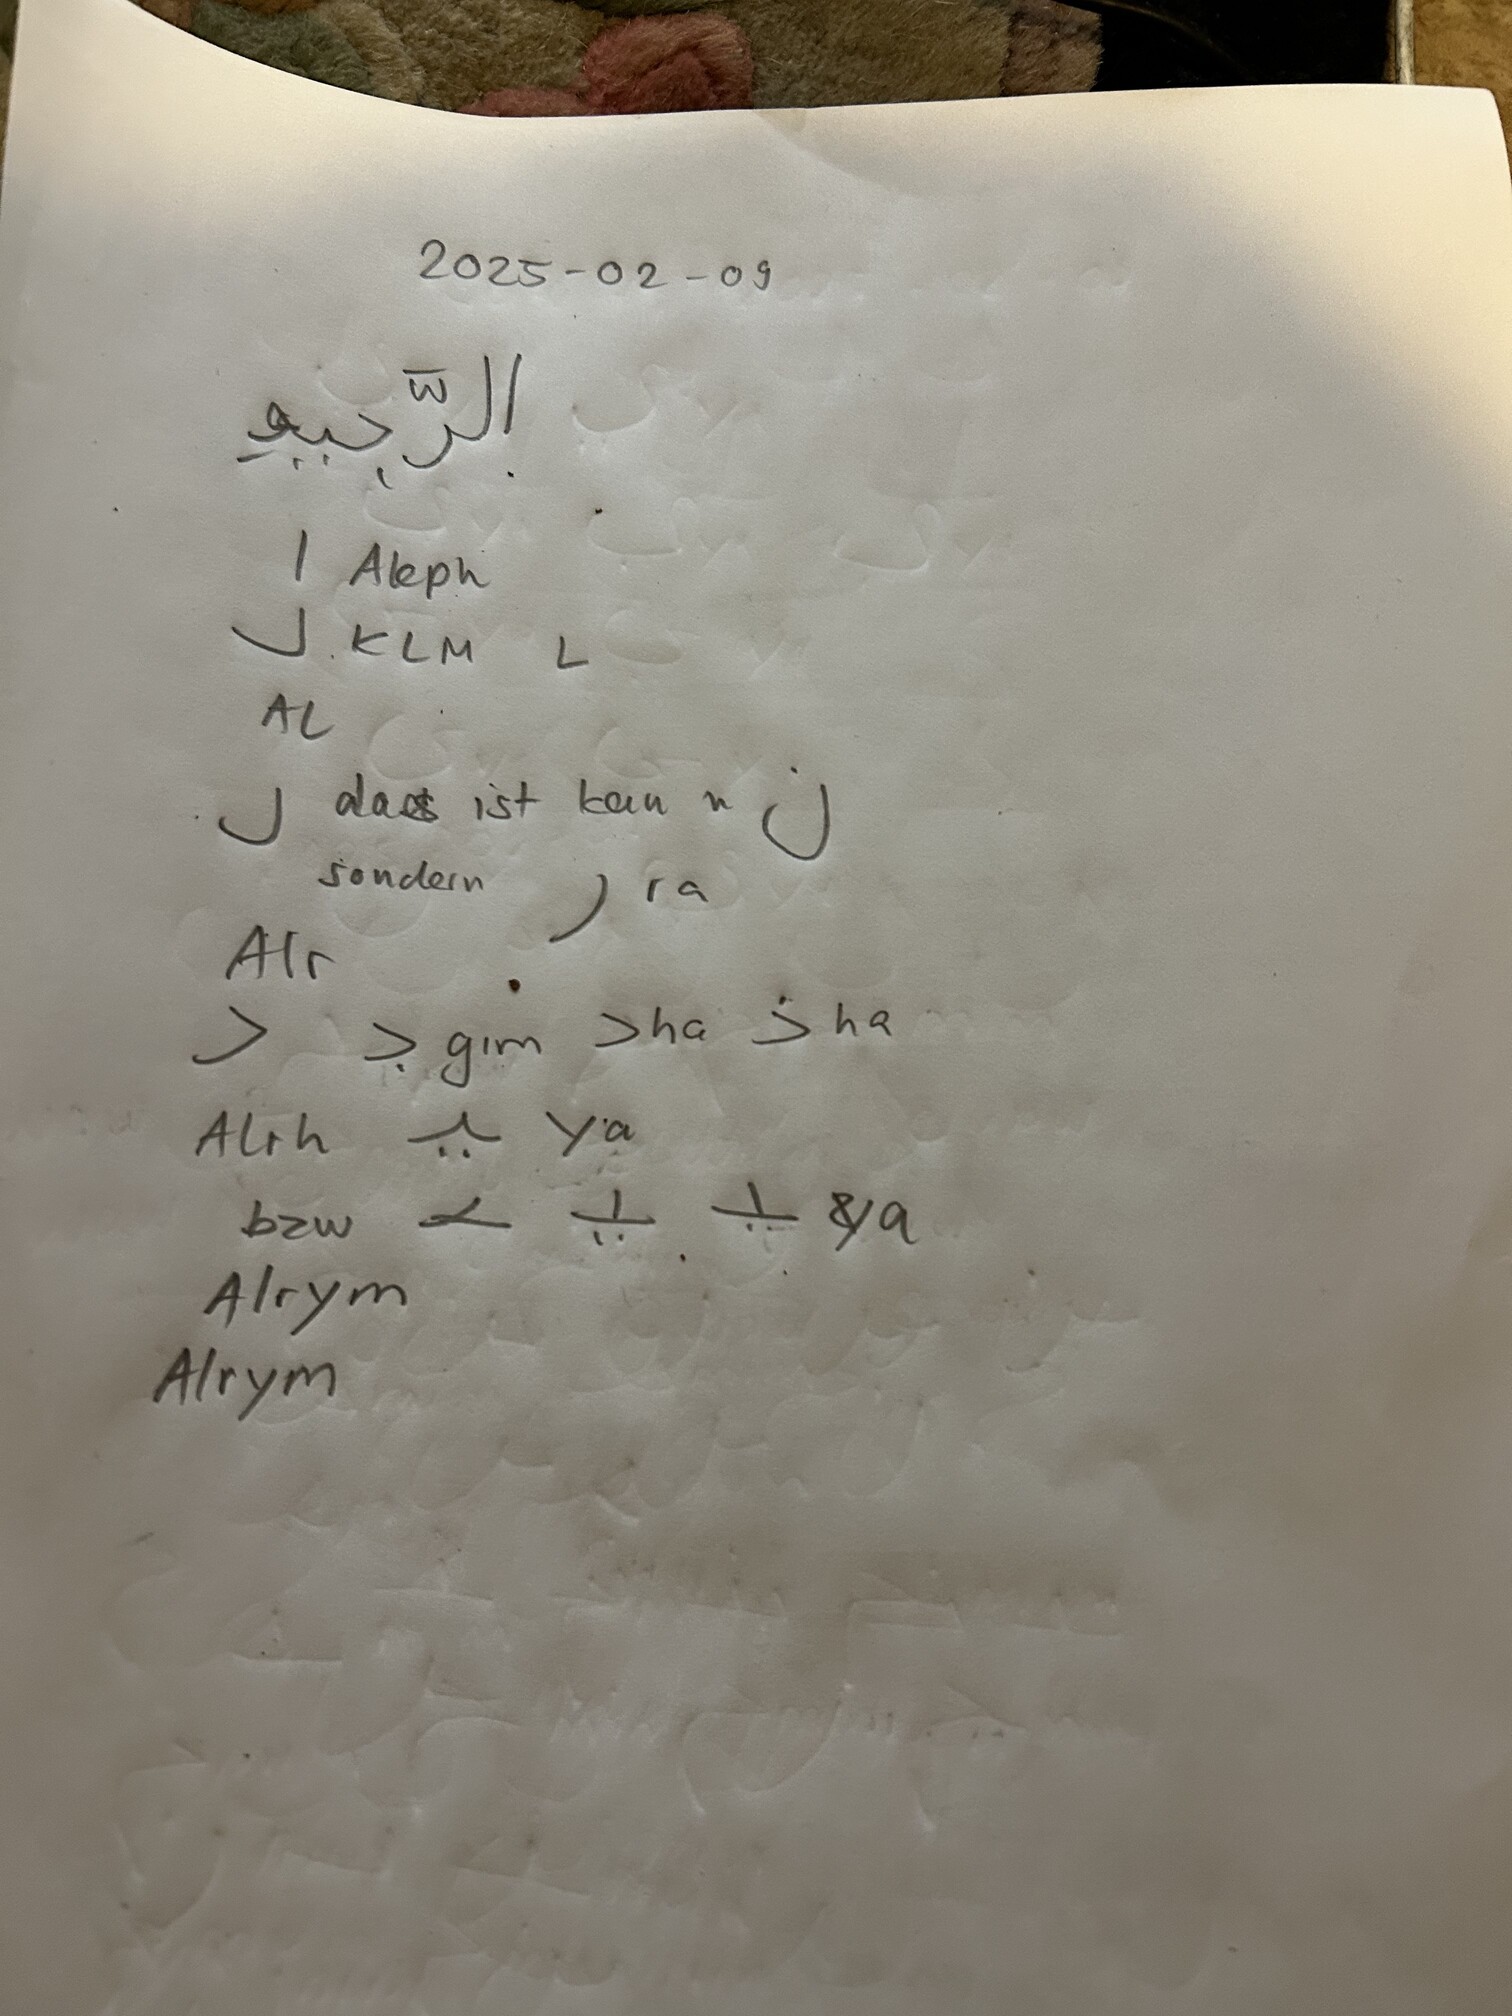 2025-02-09
الرَّجيم
ا Aleph
ل KLM L
AL
ل das ist kein n ن
sondern ر ra
Alr
د ج gim ح ha خ ha
Alrh يـ ya
bzw ـيـ ـيـ ya
Alrym
Alrym